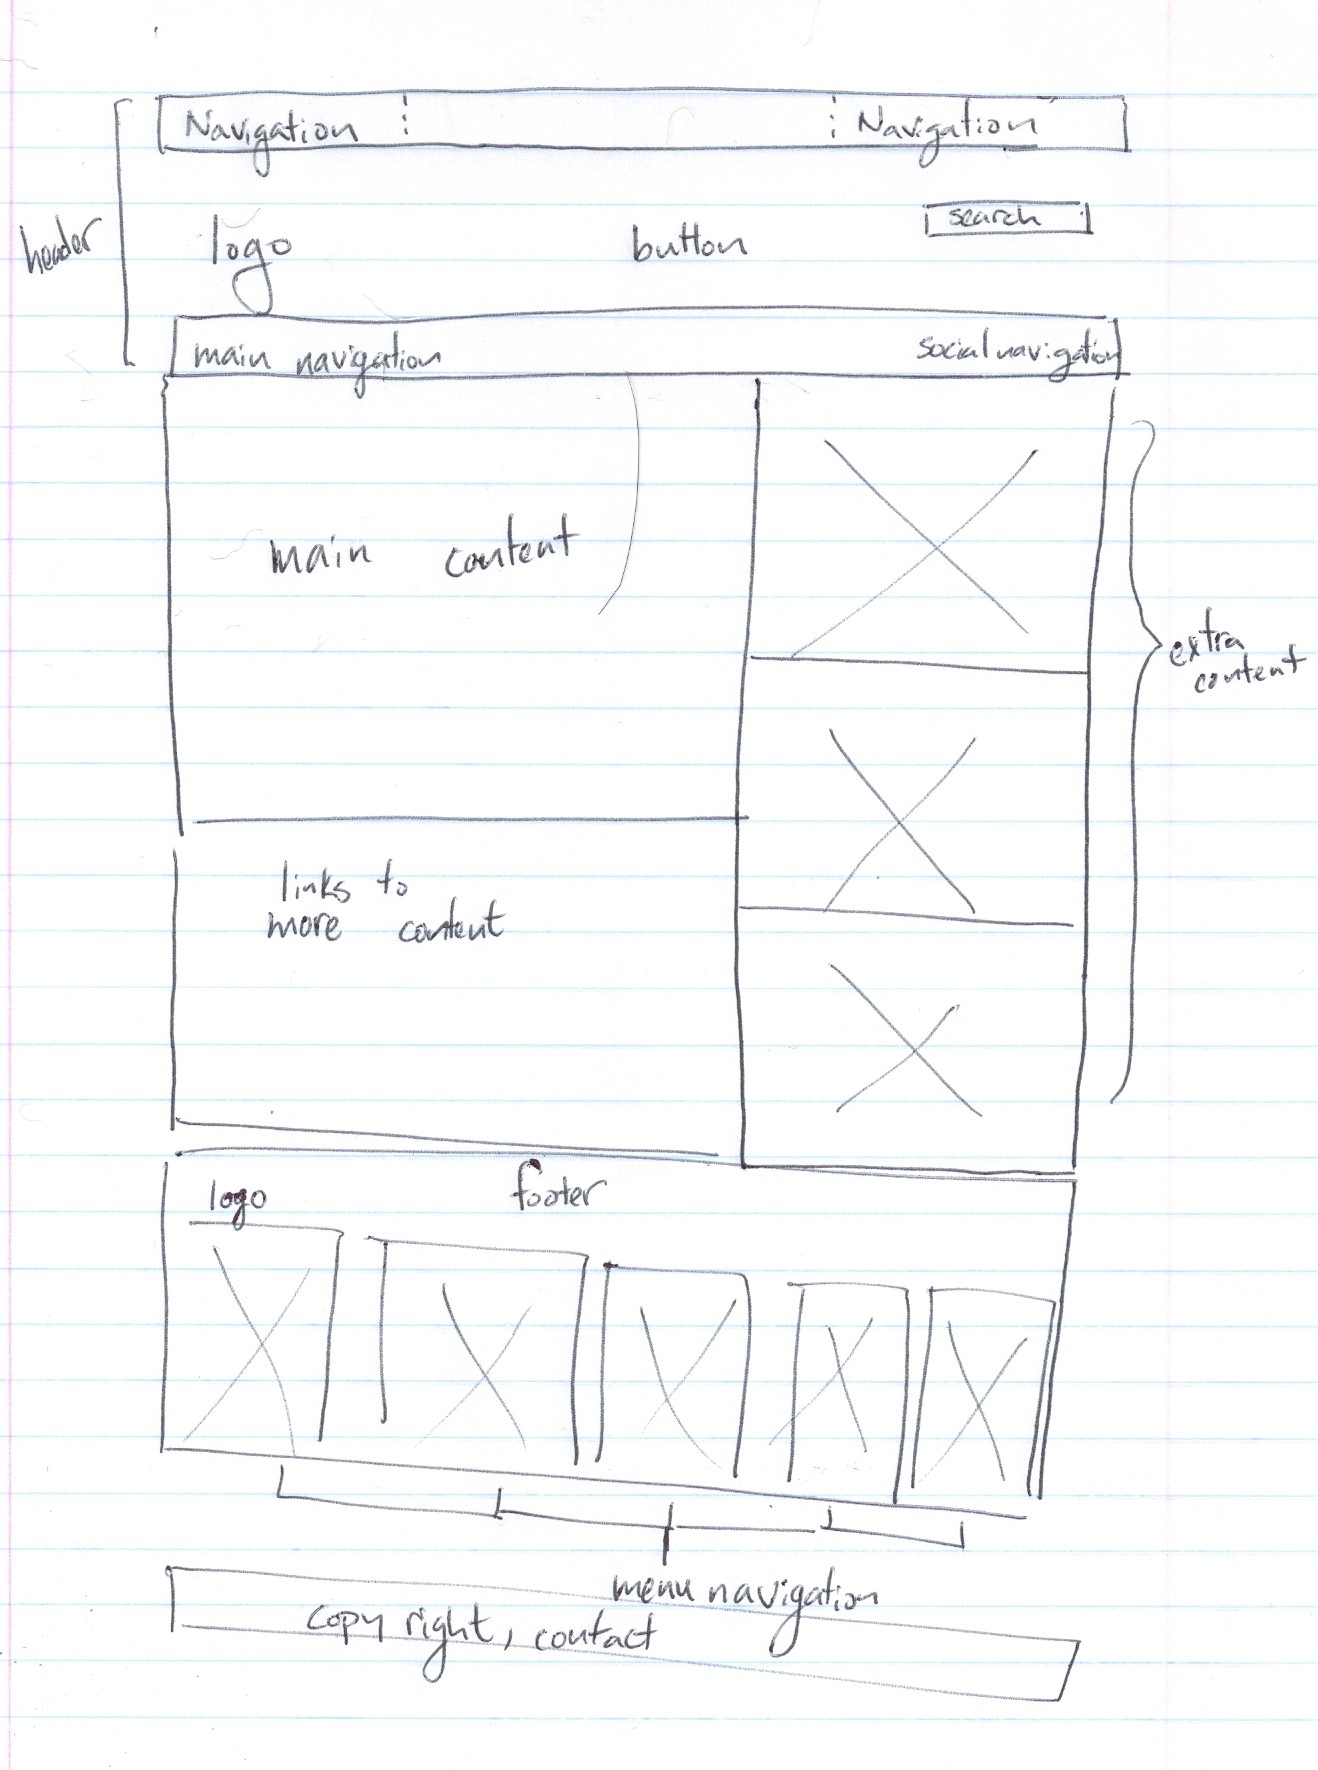 Navigation
Navigation
header
logo
button
search
main navigation
social navigation
main content
extra
content
links to
more content
logo
footer
menu navigation
copy right, contact